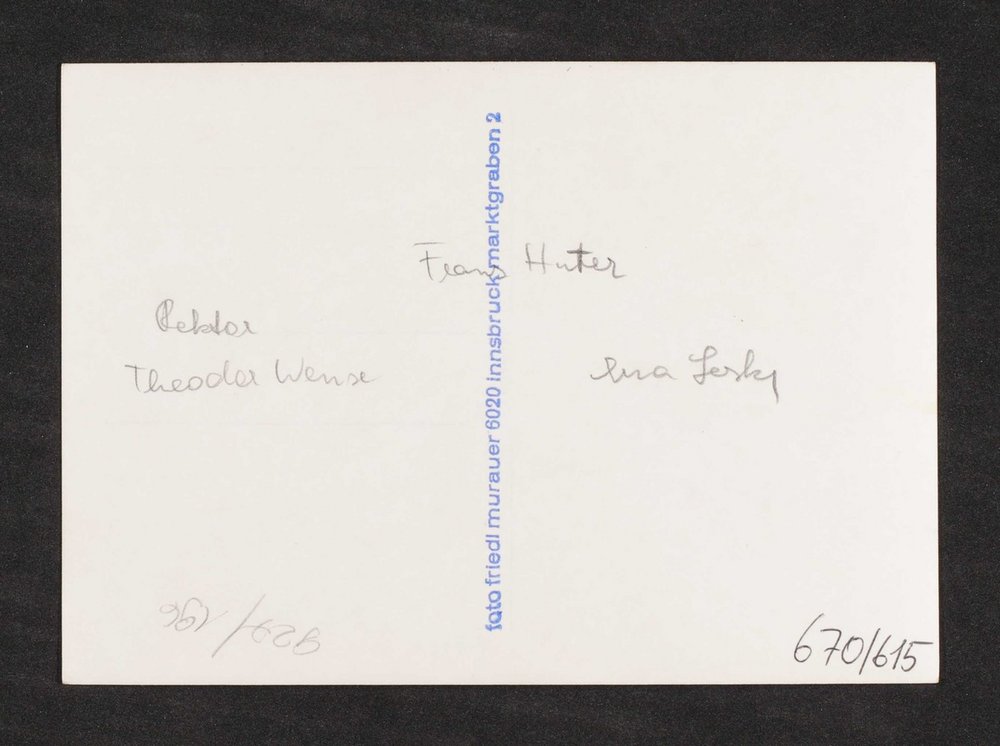 foto friedl murauer 6020 innsbruck marktgraben 2
Franz Huter
Rektor
Theodor Wense
Erna Lesky
670/615